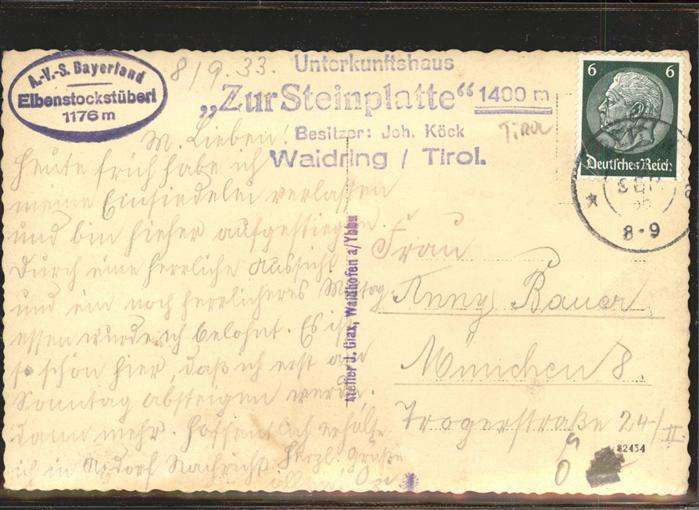 A.-V.-S. Bayerland
Eibenstockstüberl
1176 m
8/9.33.
Unterkunftshaus
„Zur Steinplatte“ 1400 m
Besitzer: Joh. Köck
Waidring / Tirol.
Tirol
6 6
Deutsches Reich
8-9
M. Lieben!
Heute früh habe ich
meine Einsiedelei verlassen
und bin hieher aufgestiegen
durch eine herrliche Aussicht
und ein noch herrlicheres Mittag
essen wurde ich belohnt. Es ist
so schön hier, daß ich erst am
Sonntag absteigen werde.
dann mehr. Hoffentlich erhalte
ich in Nachricht. Herzl. Grüße
Atelier J. Glax, Waidhofen a/Ybbs
Frau
Anny Bauer
München 8.
Trogerstraße 24/II
82454